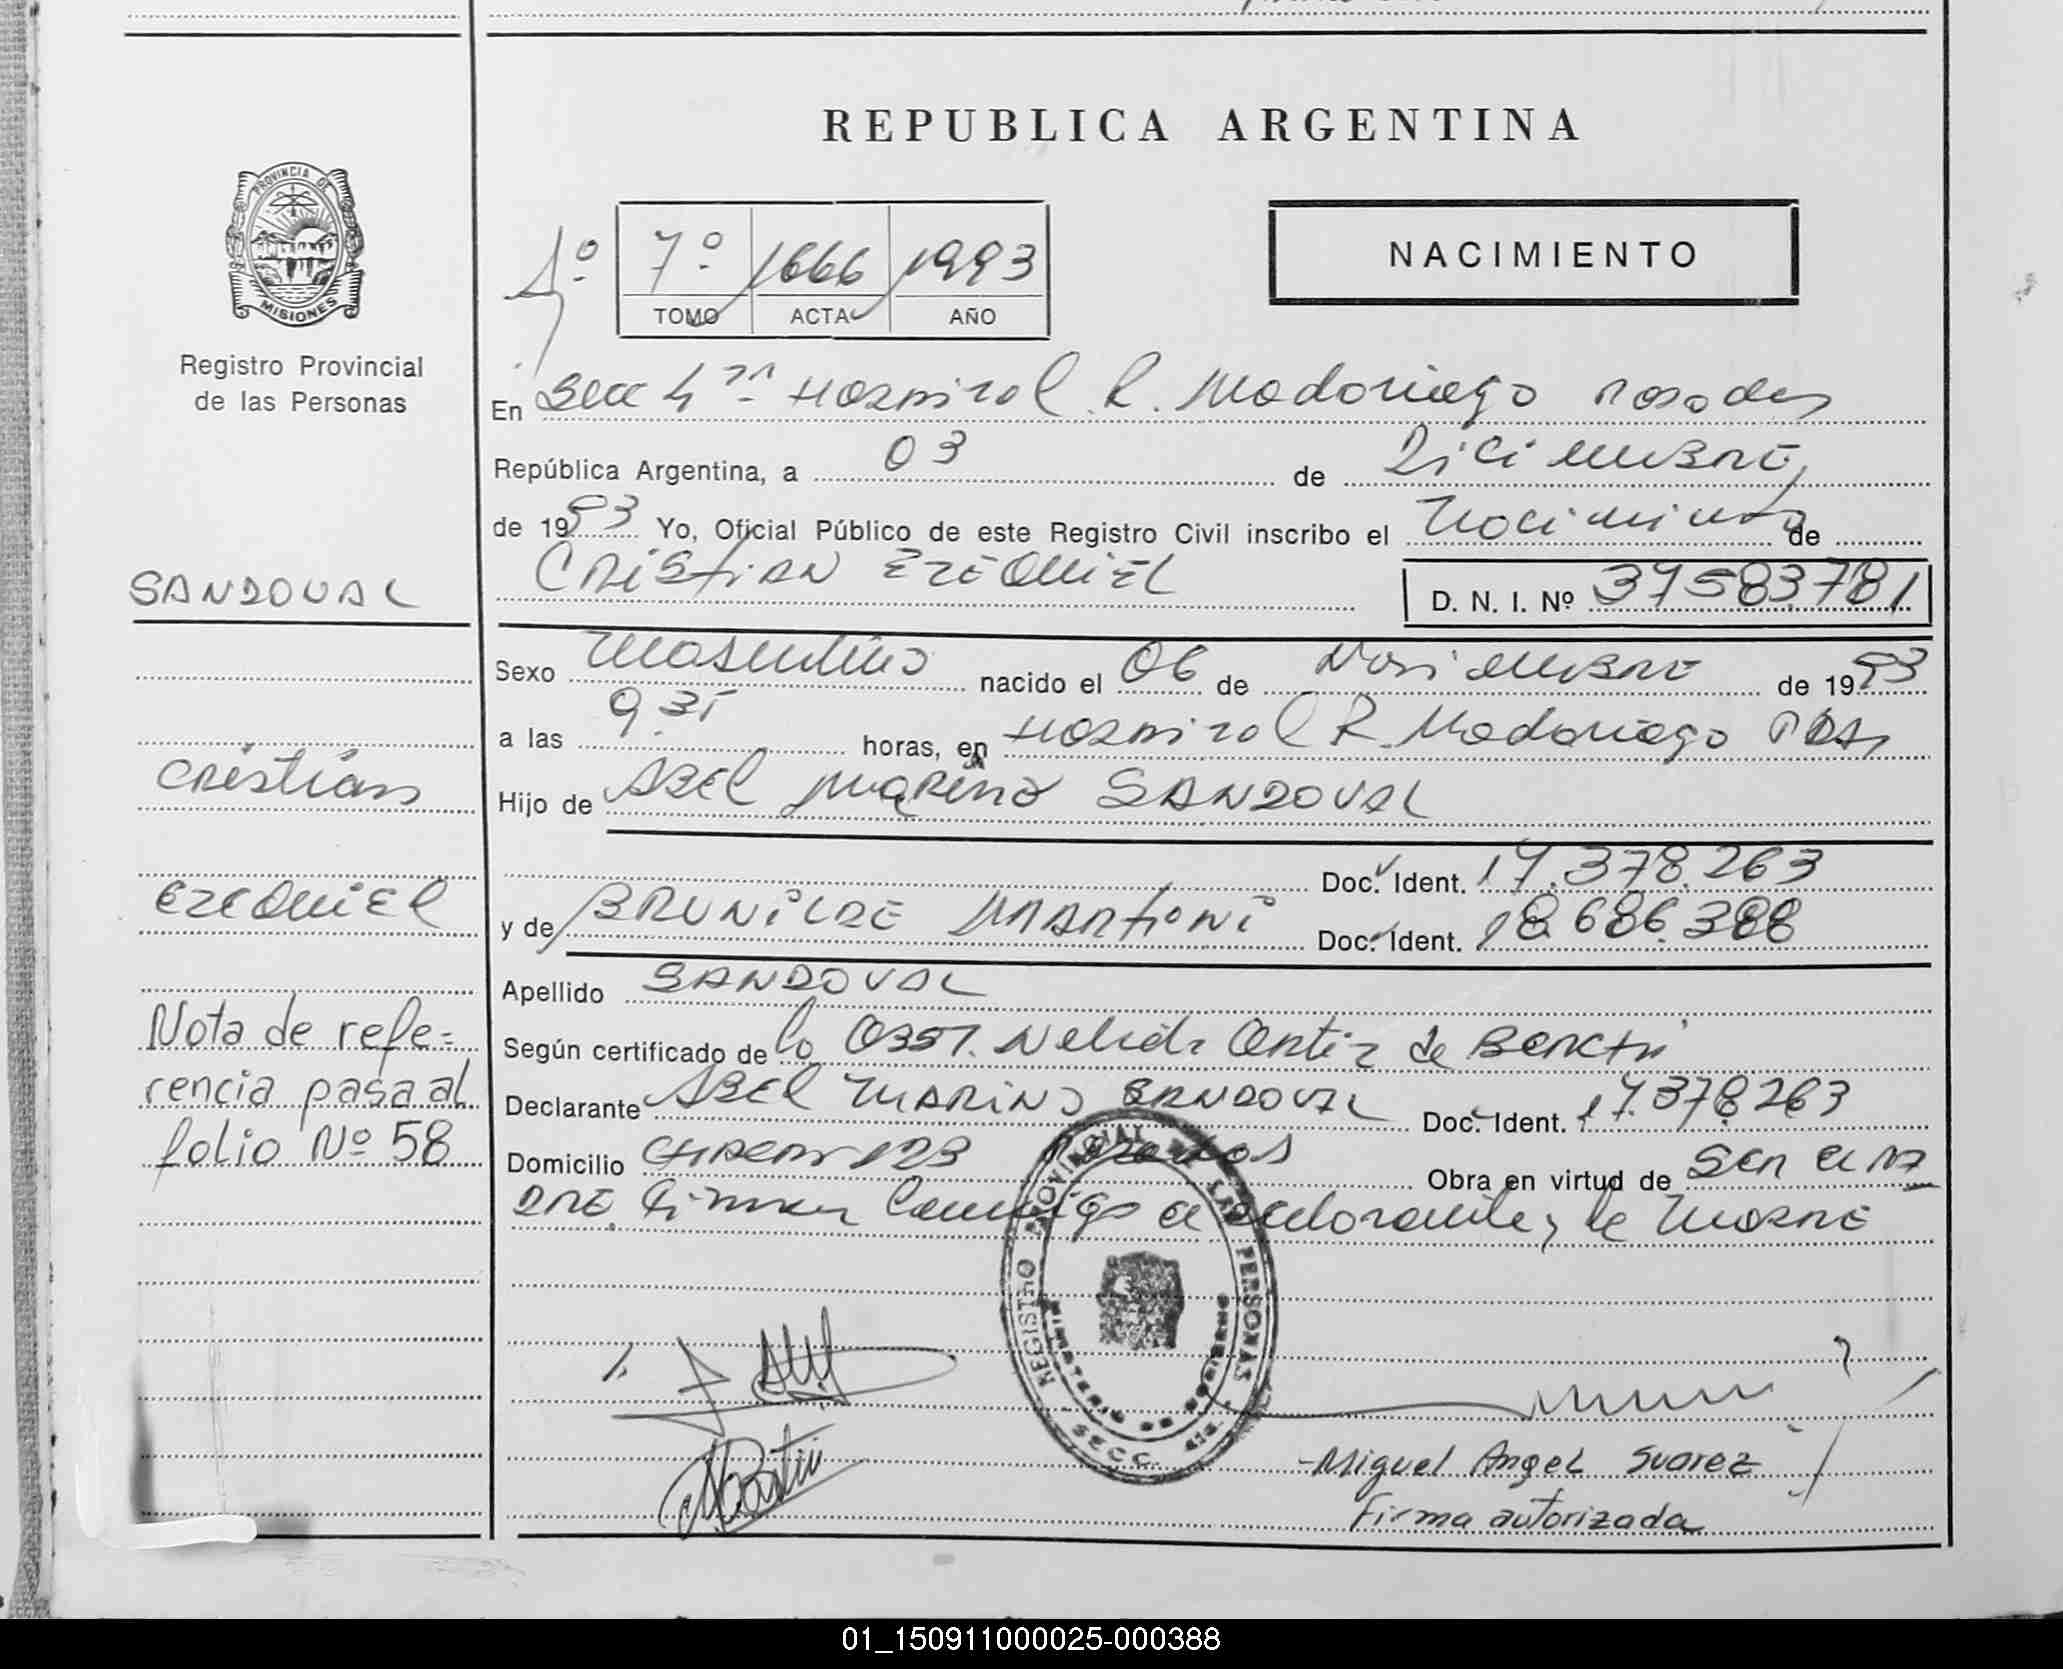 REPUBLICA ARGENTINA
PROVINCIA DE
MISIONES
Registro Provincial
de las Personas
7º 1666 1993
TOMO ACTA AÑO
NACIMIENTO
En Secc 4ta Hospital R. Madariaga Posadas
República Argentina, a 03 de Diciembre,
de 1993 Yo, Oficial Público de este Registro Civil inscribo el Nacimiento de
CRISTIAN EZEQUIEL D. N. I. Nº 37583781
SANDOVAL
Cristian
EZEQUIEL
Nota de refe=
rencia pasa al
folio Nº 58
Sexo Masculino nacido el 06 de Noviembre de 1993
a las 9.35 horas, en Hospital R. Madariaga Pdas
Hijo de ABEL MARINO SANDOVAL
Doc. Ident. 17.378.263
y de BRUNILDE MARTONI Doc. Ident. 18.686.388
Apellido SANDOVAL
Según certificado de la Obst. Nelida Ortiz de
Declarante ABEL MARINO SANDOVAL Doc. Ident. 17.378.263
Domicilio 123 Posadas Obra en virtud de Ser el PA
DRE. Firman Conmigo el declarante y la Madre
REGISTRO PROVINCIAL DE LAS PERSONAS
MINISTERIO DE GOBIERNO
SECC. 4ta
Miguel Angel Suarez
Firma autorizada
01_150911000025-000388